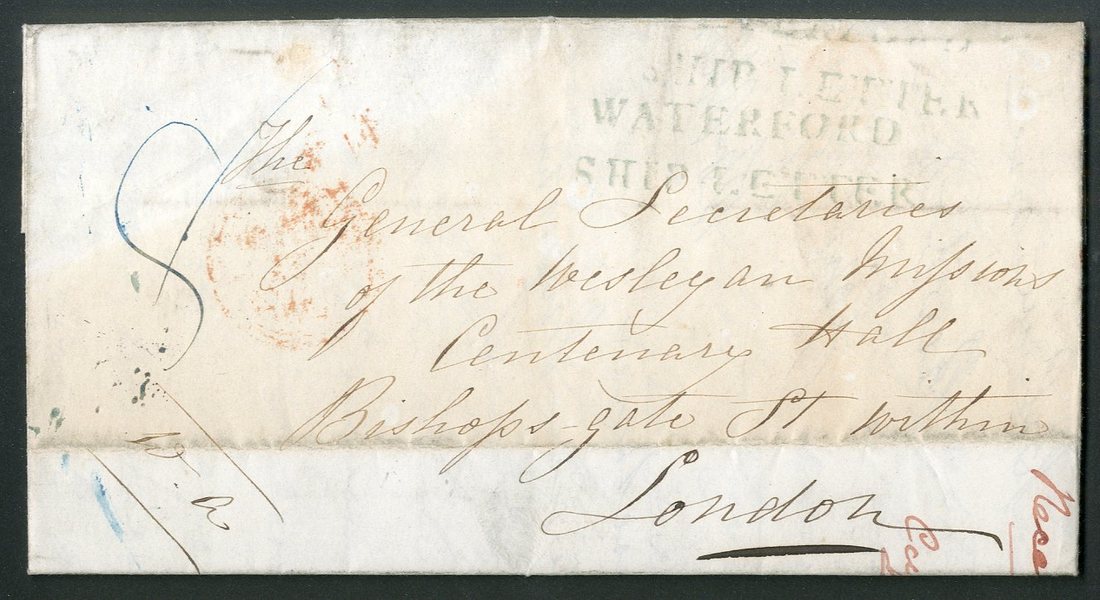 SHIP LETTER
WATERFORD
SHIP LETTER
8
The
General Secretaries
of the Wesleyan Missions
Centenary Hall
Bishops-gate St. within
London